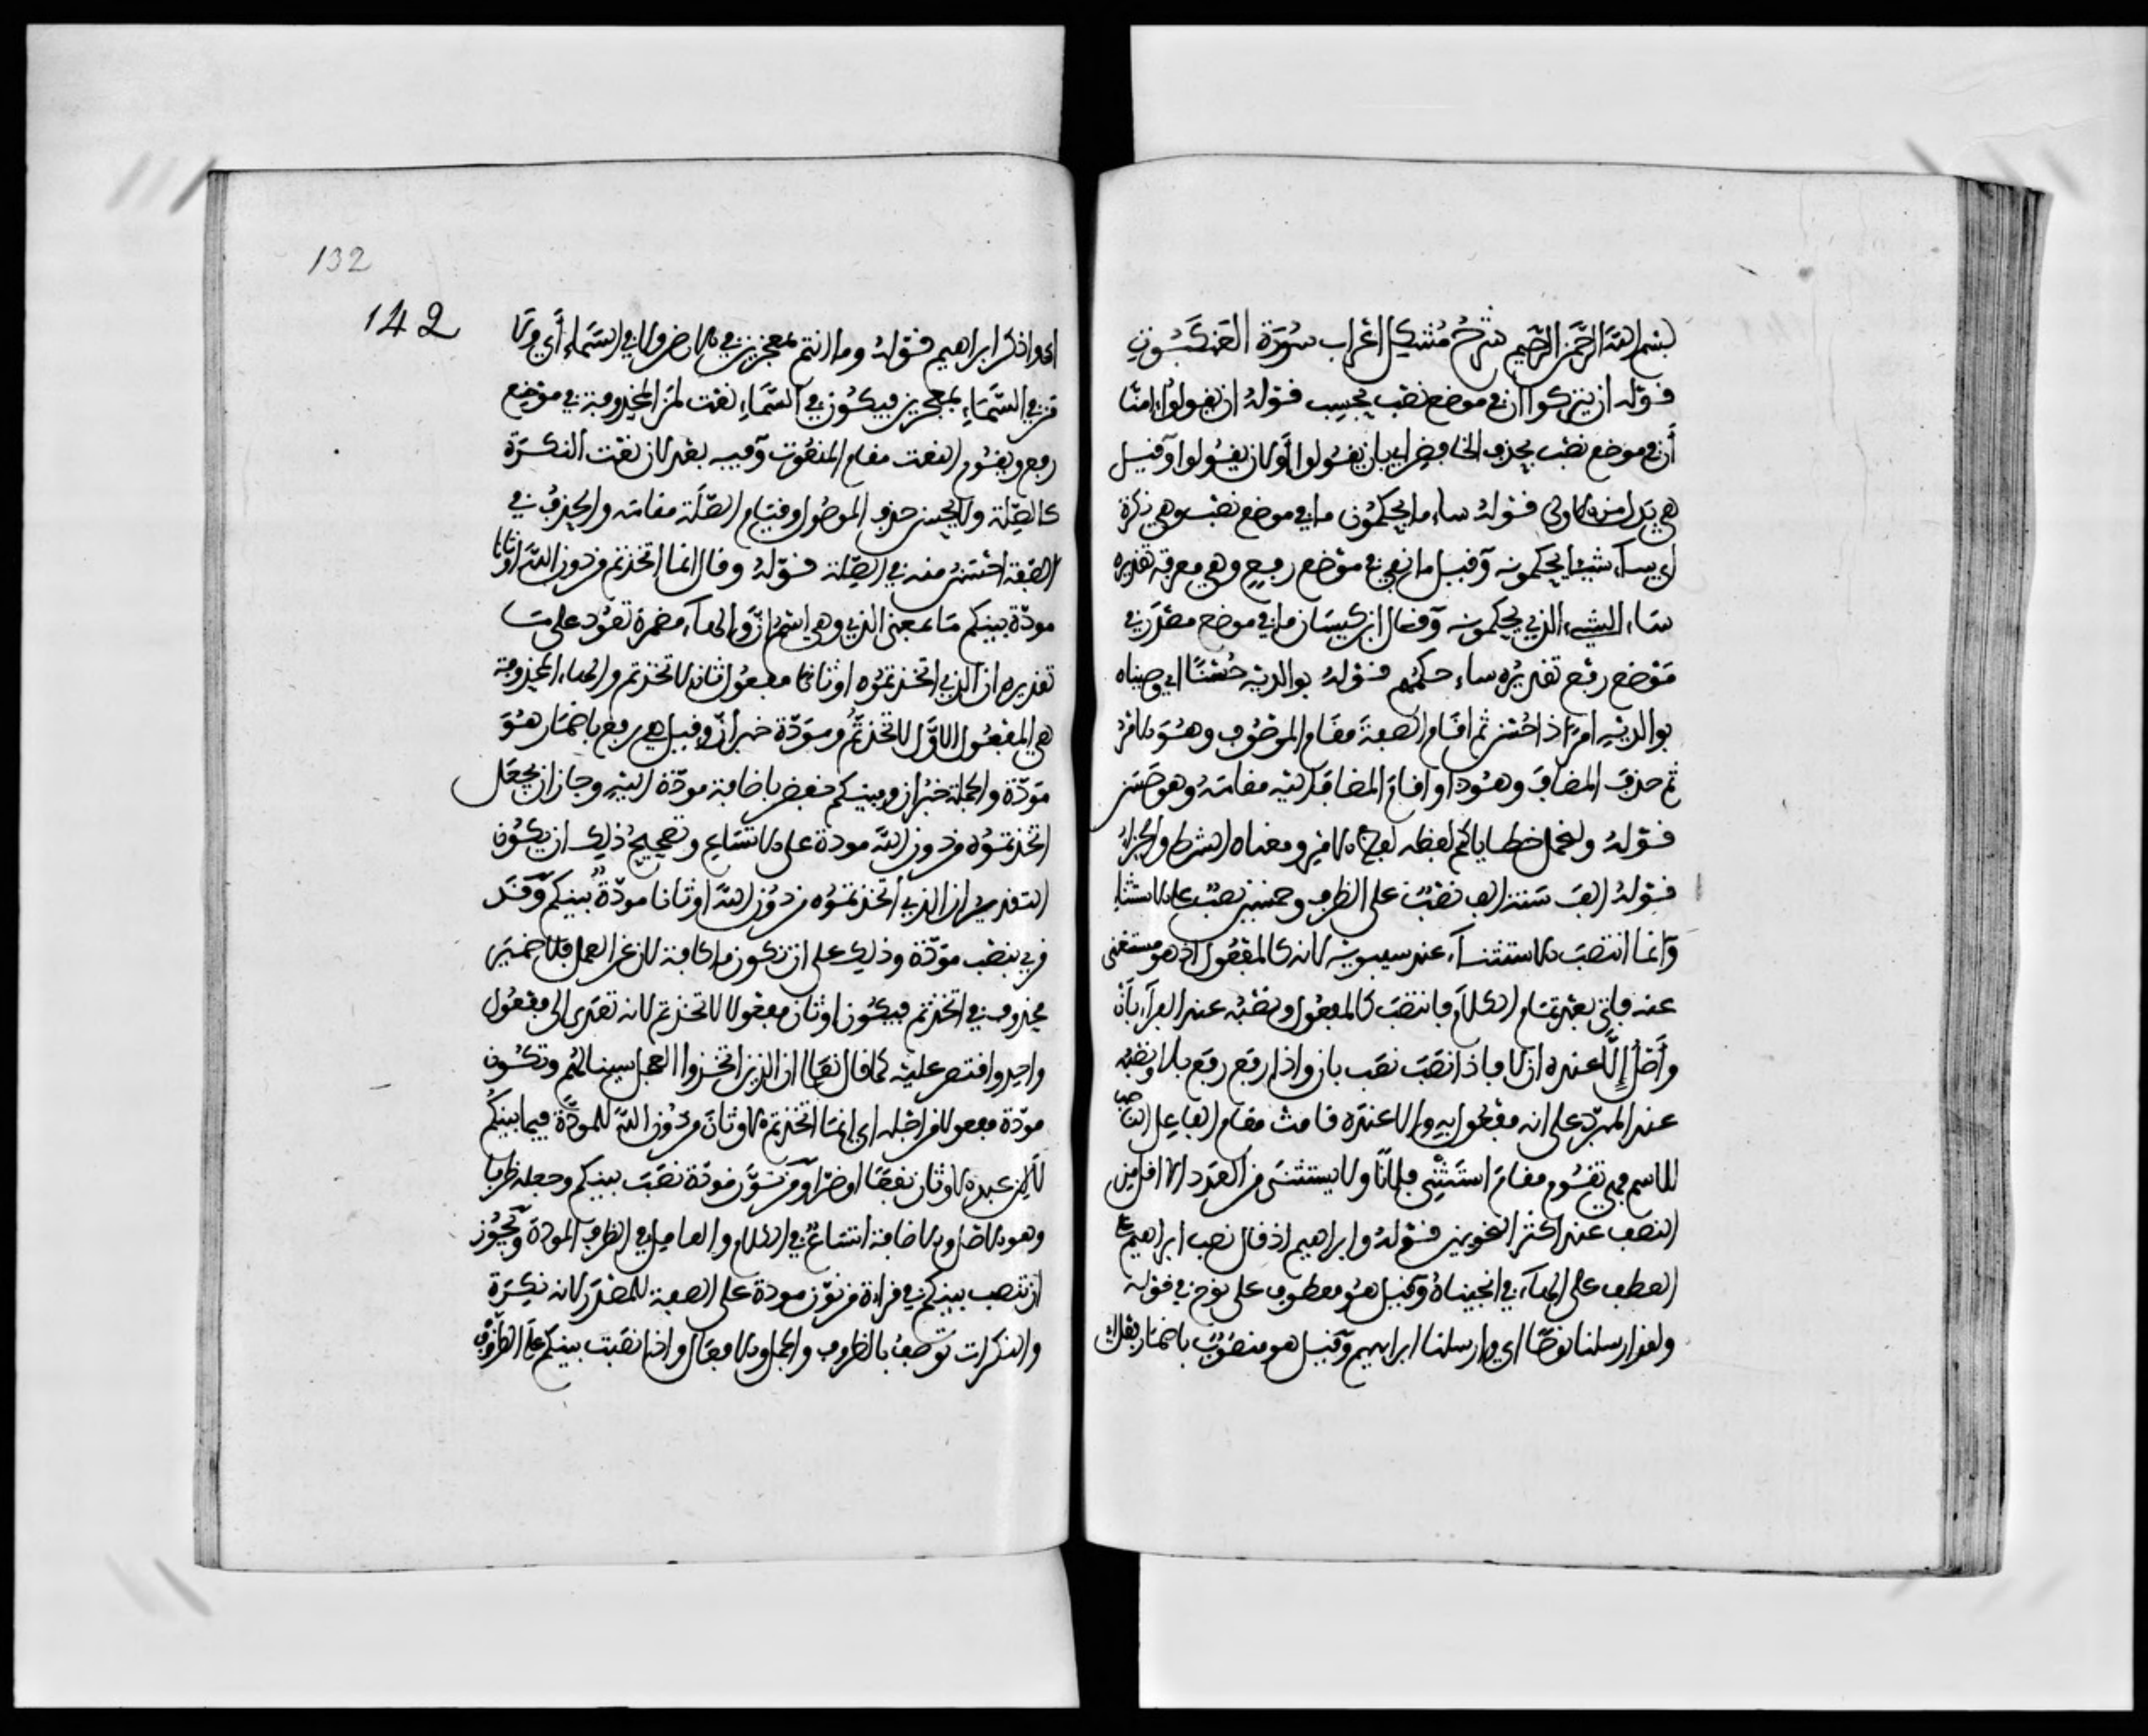 بسم الله الرحمن الرحيم شرح مشكل اعراب سورة العنكبوت
قوله ان يتركوا ان في موضع نصب بحسب قوله ان يقولوا ءامنا
أن في موضع نصب بحذف الخافض اي بان يقولوا أو لان يقولوا وقيل
هي بدل من الاولى قوله ساء ما يحكمون ما في موضع نصب وهي نكرة
اي ساء شيئا يحكمونه وقيل ما في موضع رفع وهي معرفة تقديره
ساء الشيء الذي يحكمونه وقال ابن كيسان ما في موضع مصدر في
موضع رفع تقديره ساء حكمهم قوله بوالديه حسنا اي وصيناه
بوالديه امرا ذا حسن ثم اقام الصفة مقام الموصوف وهو الامر
ثم حذف المضاف وهو ذا واقام المضاف اليه مقامه وهو حسن
قوله ولنحمل خطاياكم لفظه لفظ الامر ومعناه الشرط والجزاء
قوله الف سنة الف نصب على الظرف وخمسين نصب على الاستثناء
وانما انتصب الاستثناء عند سيبويه لانه كالمفعول اذ هو مستغنى
عنه فاتى بعد تمام الكلام فانتصب كالمفعول ونصبه عند الفراء بان
وأصل إلا عنده ان لا فاذا نصب نصب بان واذا رفع رفع بلا ونصبه
عند المبرد على انه مفعول به والا عنده قامت مقام الفاعل الناصب
للاسم فهي تقوم مقام استثني فلانا ولا يستثنى من العدد الا اقل من
النصف عند اكثر النحويين قوله وابراهيم اذ قال نصب ابراهيم على
العطف على الهاء في انجيناه وقيل هو معطوف على نوح في قوله
ولقد ارسلنا نوحا اي وارسلنا ابراهيم وقيل هو منصوب باضمار فعل
132
142
اي واذكر ابراهيم قوله وما انتم بمعجزين في الارض ولا في السماء أي ولا
من في السماء بمعجزين فيكون في السماء نعت لمن المحذوفة في موضع
رفع ويقوم النعت مقام المنعوت وفيه بعد لان نعت النكرة
كالصلة ولا يحسن حذف الموصول وقيام الصلة مقامه والحذف في
الصفة احسن منه في الصلة قوله وقال انما اتخذتم من دون الله اوثانا
مودة بينكم ما بمعنى الذي وهي اسم ان والهاء مضمرة تعود على ما
تقديره ان الذين اتخذتموه اوثانا مفعول ثان لاتخذتم والهاء المحذوفة
هي المفعول الاول لاتخذتم ومودة خبر ان وقيل هي رفع باضمار هو
مودة والجملة خبر ان وبينكم خفض باضافة مودة اليه وجاز ان يجعل
اتخذتموه من دون الله مودة على الاتساع وتصحيح ذلك ان يكون
التقدير ان الذين اتخذتموه من دون الله اوثانا مودة بينكم وقد
قرئ بنصب مودة وذلك على ان تكون ما كافة لان عن العمل فلا ضمير
محذوف في اتخذتم فيكون اوثان مفعولا لاتخذتم لانه تعدى الى مفعول
واحد واقتصر عليه كما قال تعالى ان الذين اتخذوا العجل سينالهم وتكون
مودة مفعولا من اجله اي انما اتخذتم الاوثان من دون الله للمودة فيما بينكم
لا لان عبدة الاوثان نفعا او ضرا ومن نون مودة نصب بينكم وجعله ظرفا
وهو الاصل والاضافة اتساع في الكلام والعامل في الظرف المودة ويجوز
ان تنصب بينكم في قراءة من نون مودة على الصفة للمصدر لانه نكرة
والنكرات توصف بالظروف والجمل والافعال واذا نصبت بينكم على الظرف